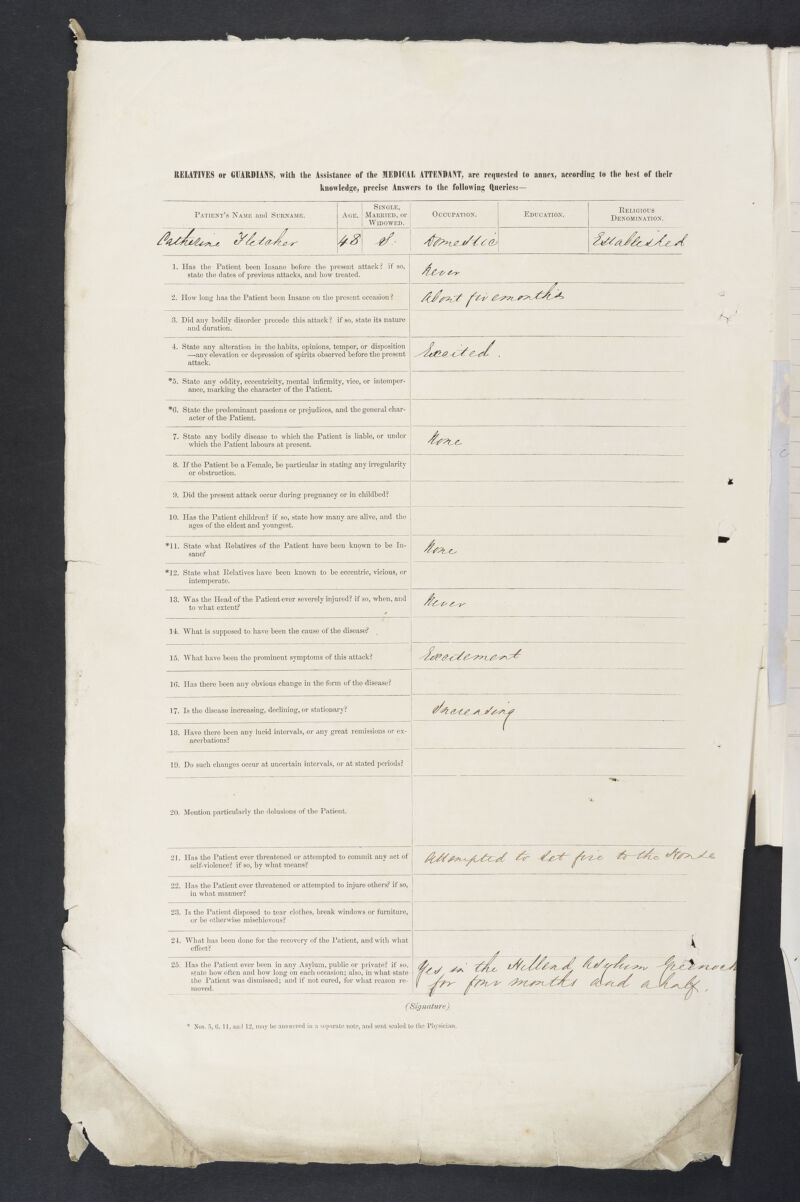 RELATIVES or GUARDIANS, with the Assistance of the MEDICAL ATTENDANT, are requested to annex, according to the best of their
knowledge, precise Answers to the following Queries:—
PATIENT'S NAME and SURNAME. AGE. SINGLE, MARRIED, or WIDOWED. OCCUPATION. EDUCATION. RELIGIOUS DENOMINATION.
Catherine Fletcher 48 S. Domestic Established
1. Has the Patient been Insane before the present attack? if so,
state the dates of previous attacks, and how treated.
Never
2. How long has the Patient been Insane on the present occasion?
About five months
3. Did any bodily disorder precede this attack? if so, state its nature
and duration.
4. State any alteration in the habits, opinions, temper, or disposition
—any elevation or depression of spirits observed before the present
attack.
Excited.
*5. State any oddity, eccentricity, mental infirmity, vice, or intemper-
ance, marking the character of the Patient.
*6. State the predominant passions or prejudices, and the general char-
acter of the Patient.
7. State any bodily disease to which the Patient is liable, or under
which the Patient labours at present.
None
8. If the Patient be a Female, be particular in stating any irregularity
or obstruction.
9. Did the present attack occur during pregnancy or in childbed?
10. Has the Patient children? if so, state how many are alive, and the
ages of the eldest and youngest.
*11. State what Relatives of the Patient have been known to be In-
sane?
None
*12. State what Relatives have been known to be eccentric, vicious, or
intemperate.
13. Was the Head of the Patient ever severely injured? if so, when, and
to what extent?
Never
14. What is supposed to have been the cause of the disease?
15. What have been the prominent symptoms of this attack?
Excitement
16. Has there been any obvious change in the form of the disease?
17. Is the disease increasing, declining, or stationary?
Increasing
18. Have there been any lucid intervals, or any great remissions or ex-
acerbations?
19. Do such changes occur at uncertain intervals, or at stated periods?
20. Mention particularly the delusions of the Patient.
21. Has the Patient ever threatened or attempted to commit any act of
self-violence? if so, by what means?
Attempted to set fire to the House
22. Has the Patient ever threatened or attempted to injure others? if so,
in what manner?
23. Is the Patient disposed to tear clothes, break windows or furniture,
or be otherwise mischievous?
24. What has been done for the recovery of the Patient, and with what
effect?
25. Has the Patient ever been in any Asylum, public or private? if so,
state how often and how long on each occasion; also, in what state
the Patient was dismissed; and if not cured, for what reason re-
moved.
Yes, in the Hillend Asylum Greenock
for four months and a half.
(Signature)
* Nos. 5, 6, 11, and 12, may be answered in a separate note, and sent sealed to the Physician.